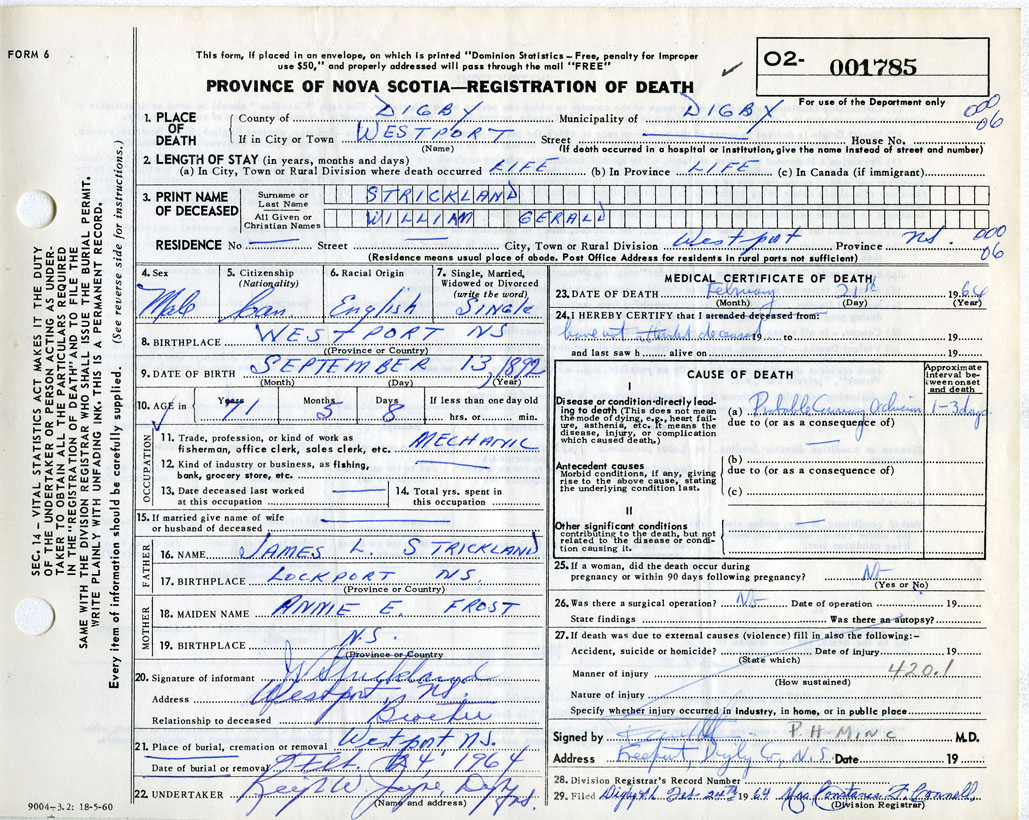 FORM 6
This form, if placed in an envelope, on which is printed "Dominion Statistics — Free, penalty for improper
use $50," and properly addressed will pass through the mail "FREE"
02- 001785
For use of the Department only
PROVINCE OF NOVA SCOTIA—REGISTRATION OF DEATH
000
06
1. PLACE OF DEATH
County of DIGBY Municipality of DIGBY
If in City or Town WESTPORT Street House No.
(Name) (If death occurred in a hospital or institution, give the name instead of street and number)
2. LENGTH OF STAY (in years, months and days)
(a) In City, Town or Rural Division where death occurred LIFE (b) In Province LIFE (c) In Canada (if immigrant)
3. PRINT NAME OF DECEASED
Surname or Last Name STRICKLAND
All Given or Christian Names WILLIAM GERALD
RESIDENCE No Street City, Town or Rural Division Westport Province NS. 000
06
(Residence means usual place of abode. Post Office Address for residents in rural parts not sufficient)
4. Sex Male
5. Citizenship (Nationality) Can
6. Racial Origin English
7. Single, Married, Widowed or Divorced (write the word) SINGLE
8. BIRTHPLACE WESTPORT NS
(Province or Country)
9. DATE OF BIRTH SEPTEMBER 13, 1892
(Month) (Day) (Year)
10. AGE in Years 71 Months 5 Days 8 If less than one day old
hrs. or min.
OCCUPATION
11. Trade, profession, or kind of work as
fisherman, office clerk, sales clerk, etc. MECHANIC
12. Kind of industry or business, as fishing,
bank, grocery store, etc.
13. Date deceased last worked
at this occupation
14. Total yrs. spent in
this occupation
15. If married give name of wife
or husband of deceased
FATHER
16. NAME JAMES L. STRICKLAND
17. BIRTHPLACE LOCKPORT NS.
(Province or Country)
MOTHER
18. MAIDEN NAME ANNIE E. FROST
19. BIRTHPLACE N.S.
(Province or Country)
20. Signature of informant Strickland
Address Westport, NS.
Relationship to deceased Brother
21. Place of burial, cremation or removal Westport NS.
Date of burial or removal Feb. 24, 1964
22. UNDERTAKER W. NS.
(Name and address)
9004-3.2: 18-5-60
MEDICAL CERTIFICATE OF DEATH
23. DATE OF DEATH February 21th 1964
(Month) (Day) (Year)
24. I HEREBY CERTIFY that I attended deceased from:
have not attended deceased 19 to 19
and last saw h alive on 19
CAUSE OF DEATH
Approximate interval between onset and death
I
Disease or condition directly leading to death (This does not mean the mode of dying, e.g., heart failure, asthenia, etc. It means the disease, injury, or complication which caused death.)
(a) Probable Coronary Occlusion 1-3 days
due to (or as a consequence of)
Antecedent causes
Morbid conditions, if any, giving rise to the above cause, stating the underlying condition last.
(b)
due to (or as a consequence of)
(c)
II
Other significant conditions
contributing to the death, but not related to the disease or condition causing it.
25. If a woman, did the death occur during
pregnancy or within 90 days following pregnancy? No
(Yes or No)
26. Was there a surgical operation? No Date of operation 19
State findings Was there an autopsy?
27. If death was due to external causes (violence) fill in also the following:-
Accident, suicide or homicide? Date of injury 19
(State which)
Manner of injury 420.1
(How sustained)
Nature of injury
Specify whether injury occurred in industry, in home, or in public place
Signed by P.H. M.D.
Address Freeport, Digby Co, N.S. Date 19
28. Division Registrar's Record Number
29. Filed Feb 24th 1964 Mrs Constance F. Connell,
(Division Registrar)
SEC. 14 – VITAL STATISTICS ACT MAKES IT THE DUTY
OF THE UNDERTAKER OR PERSON ACTING AS UNDER-
TAKER TO OBTAIN ALL THE PARTICULARS REQUIRED
IN THE "REGISTRATION OF DEATH" AND TO FILE THE
SAME WITH THE DIVISION REGISTRAR WHO SHALL ISSUE THE BURIAL PERMIT.
WRITE PLAINLY WITH UNFADING INK. THIS IS A PERMANENT RECORD.
Every item of information should be carefully supplied. (See reverse side for instructions.)